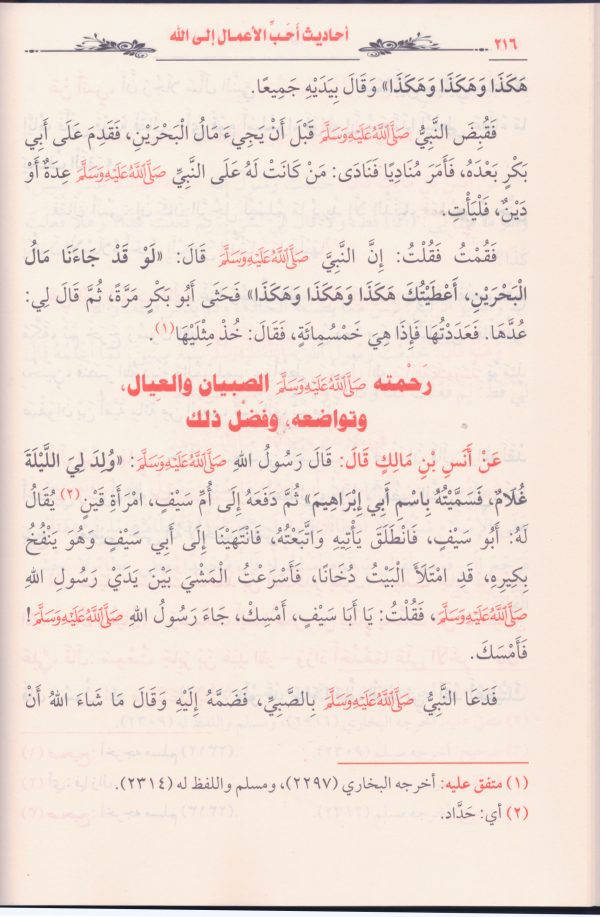 ٢١٦
أحاديث أحَبِّ الأعمال إلى الله
هَكَذَا وَهَكَذَا وَهَكَذَا» وَقَالَ بِيَدَيْهِ جَمِيعًا.
فَقُبِضَ النَّبِيُّ صَلَّى اللهُ عَلَيْهِ وَسَلَّمَ قَبْلَ أَنْ يَجِيءَ مَالُ الْبَحْرَيْنِ، فَقَدِمَ عَلَى أَبِي
بَكْرٍ بَعْدَهُ، فَأَمَرَ مُنَادِيًا فَنَادَى: مَنْ كَانَتْ لَهُ عَلَى النَّبِيِّ صَلَّى اللهُ عَلَيْهِ وَسَلَّمَ عِدَةٌ أَوْ
دَيْنٌ، فَلْيَأْتِ.
فَقُمْتُ فَقُلْتُ: إِنَّ النَّبِيَّ صَلَّى اللهُ عَلَيْهِ وَسَلَّمَ قَالَ: «لَوْ قَدْ جَاءَنَا مَالُ
الْبَحْرَيْنِ، أَعْطَيْتُكَ هَكَذَا وَهَكَذَا وَهَكَذَا» فَحَثَى أَبُو بَكْرٍ مَرَّةً، ثُمَّ قَالَ لِي:
عُدَّهَا. فَعَدَدْتُهَا فَإِذَا هِيَ خَمْسُمِائَةٍ، فَقَالَ: خُذْ مِثْلَيْهَا(١).
رَحْمته صَلَّى اللهُ عَلَيْهِ وَسَلَّمَ الصبيان والعِيال،
وتواضعه، وفَضْل ذلك
عَنْ أَنَسِ بْنِ مَالِكٍ قَالَ: قَالَ رَسُولُ اللهِ صَلَّى اللهُ عَلَيْهِ وَسَلَّمَ: «وُلِدَ لِيَ اللَّيْلَةَ
غُلَامٌ، فَسَمَّيْتُهُ بِاسْمِ أَبِي إِبْرَاهِيمَ» ثُمَّ دَفَعَهُ إِلَى أُمِّ سَيْفٍ، امْرَأَةِ قَيْنٍ(٢) يُقَالُ
لَهُ: أَبُو سَيْفٍ، فَانْطَلَقَ يَأْتِيهِ وَاتَّبَعْتُهُ، فَانْتَهَيْنَا إِلَى أَبِي سَيْفٍ وَهُوَ يَنْفُخُ
بِكِيرِهِ، قَدِ امْتَلَأَ الْبَيْتُ دُخَانًا، فَأَسْرَعْتُ الْمَشْيَ بَيْنَ يَدَيْ رَسُولِ اللهِ
صَلَّى اللهُ عَلَيْهِ وَسَلَّمَ، فَقُلْتُ: يَا أَبَا سَيْفٍ، أَمْسِكْ، جَاءَ رَسُولُ اللهِ صَلَّى اللهُ عَلَيْهِ وَسَلَّمَ!
فَأَمْسَكَ.
فَدَعَا النَّبِيُّ صَلَّى اللهُ عَلَيْهِ وَسَلَّمَ بِالصَّبِيِّ، فَضَمَّهُ إِلَيْهِ وَقَالَ مَا شَاءَ اللهُ أَنْ
(١) متفق عليه: أخرجه البخاري (٢٢٩٧)، ومسلم واللفظ له (٢٣١٤).
(٢) أي: حَدَّاد.